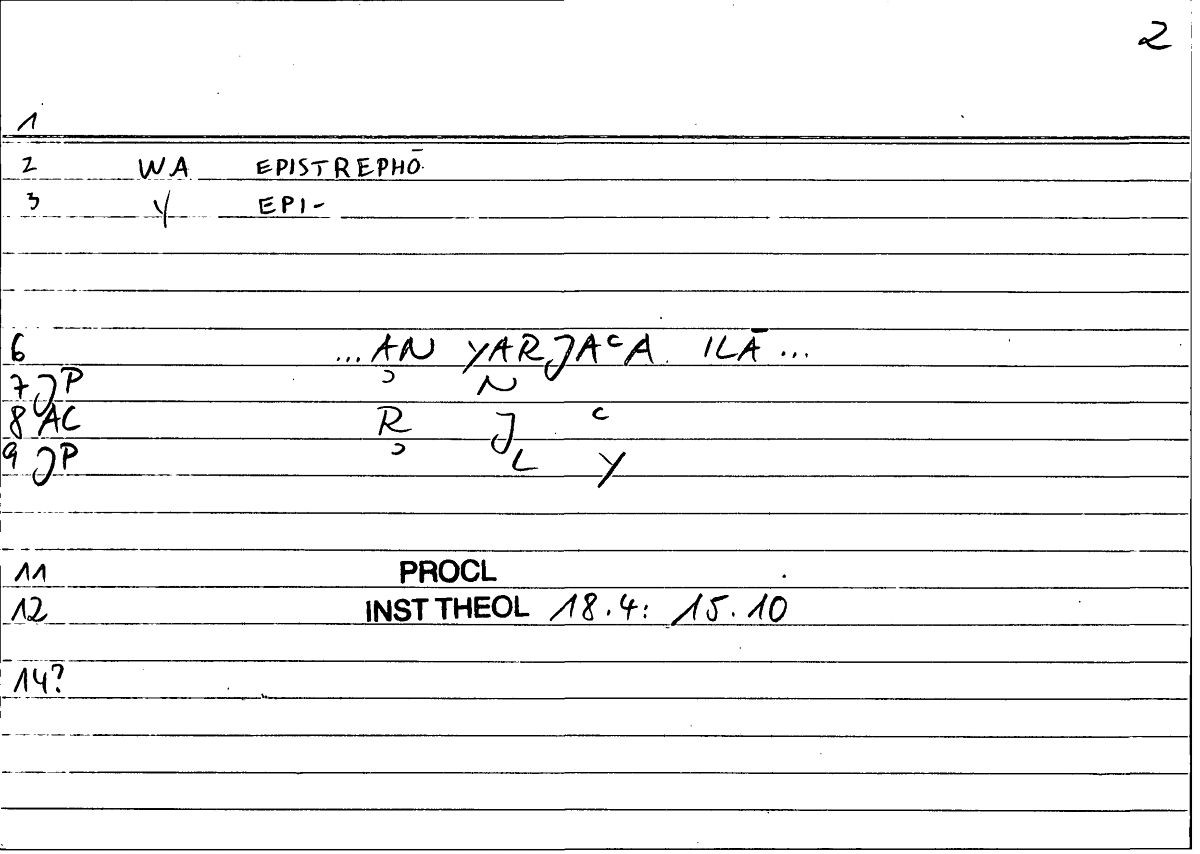 2
1
2 WA EPISTREPHŌ
3 Y EPI-
6 ...AN YARJAᶜA ILĀ...
7 JP ɔ N
8 AC R J ᶜ
9 JP ɔ L Y
11 PROCL
12 INST THEOL 18.4: 15.10
14?